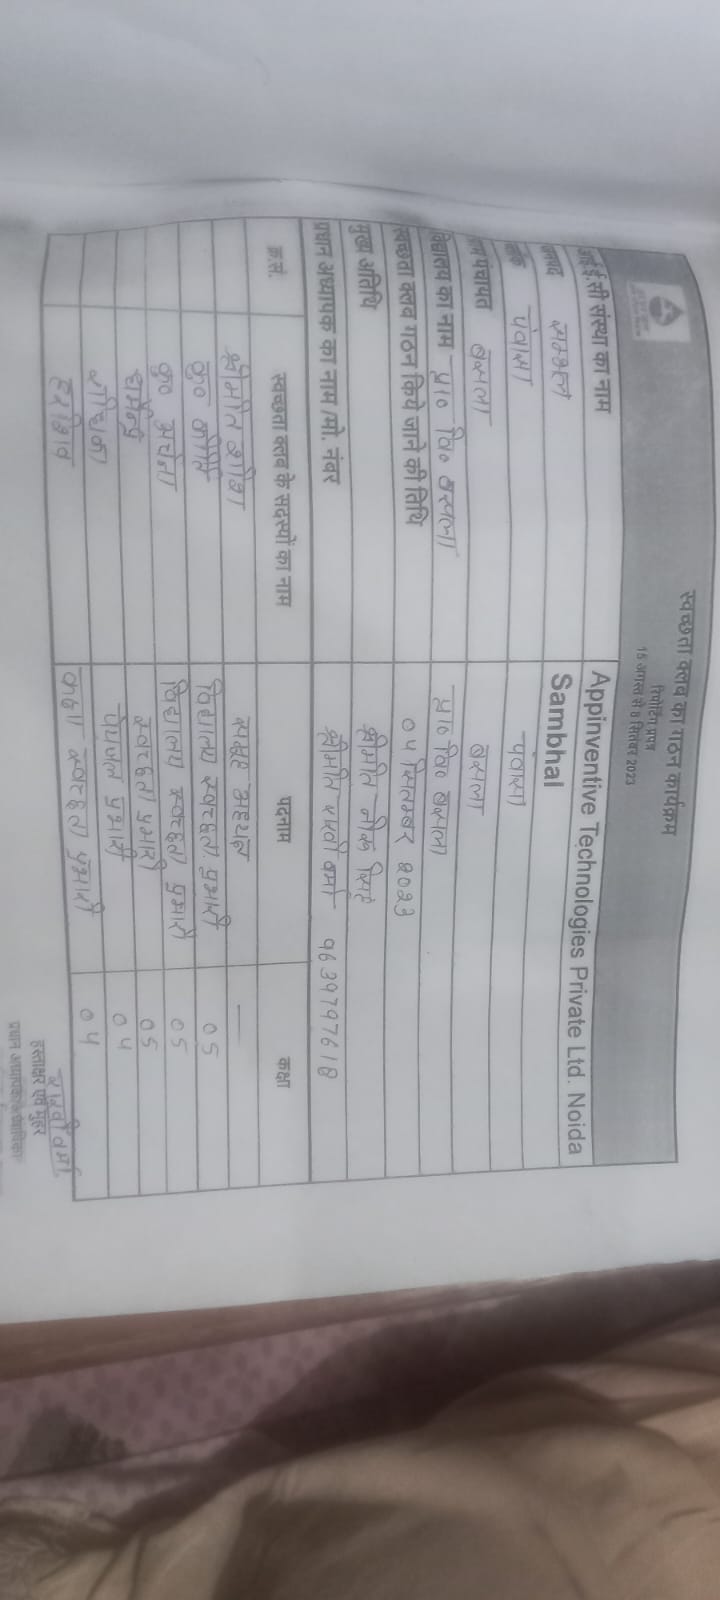 स्वच्छता क्लब का गठन कार्यक्रम
रिपोर्टिंग प्रपत्र
15 अगस्त से 8 सितंबर 2023
आई.ई.सी संस्था का नाम Appinventive Technologies Private Ltd. Noida
जनपद सम्भल Sambhal
पंवासा पंवासा
पंचायत
विद्यालय का नाम प्रा० वि० प्रा० वि०
स्वच्छता क्लब गठन किये जाने की तिथि 04 सितम्बर 2023
मुख्य अतिथि श्रीमति सिंह
प्रधान अध्यापक का नाम /मो. नंबर श्रीमति वर्मा 9639797618
क्र.सं. स्वच्छता क्लब के सदस्यों का नाम पदनाम कक्षा
श्रीमति —
कु० विद्यालय स्वच्छता प्रभारी 05
कु० अर्चना विद्यालय स्वच्छता प्रभारी 05
धर्मेन्द्र स्वच्छता प्रभारी 05
पेयजल प्रभारी 04
कक्षा स्वच्छता प्रभारी 04
वर्मा
हस्ताक्षर एवं मुहर